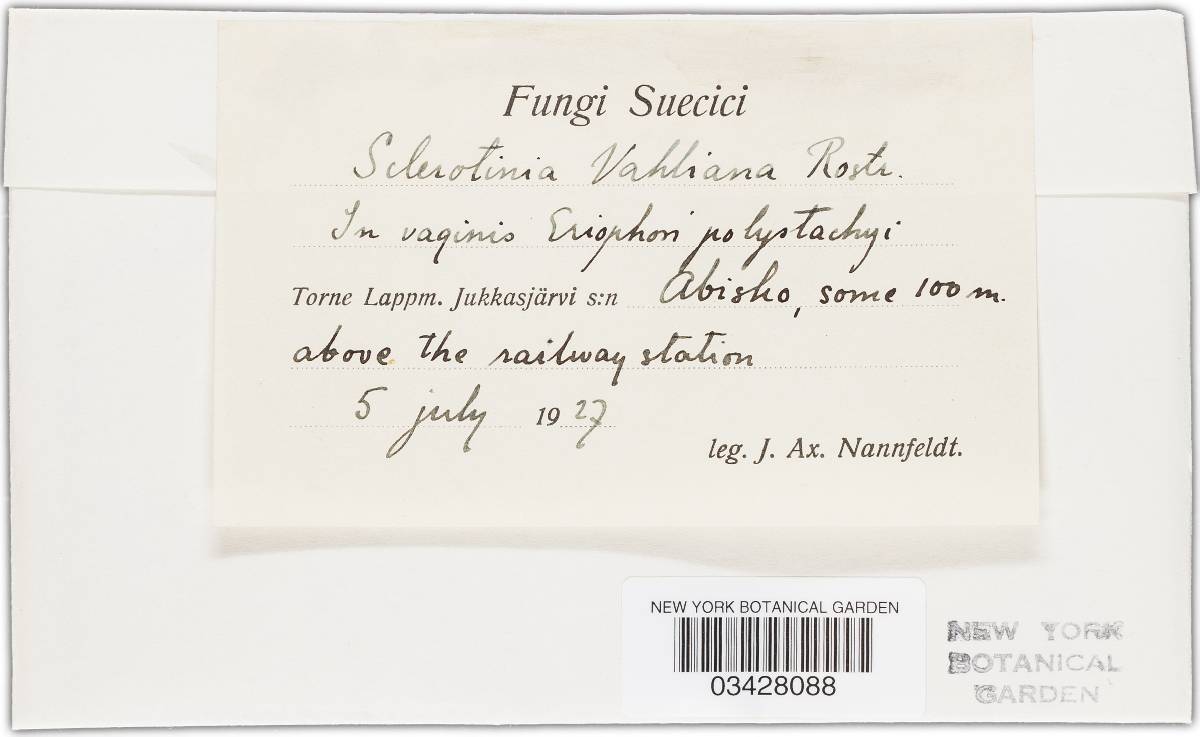 Fungi Suecici
Sclerotinia Vahliana Rostr.
In vaginis Eriophori polystachyi
Torne Lappm. Jukkasjärvi s:n Abisko, some 100 m.
above the railway station
5 july 1927
leg. J. Ax. Nannfeldt.
NEW YORK BOTANICAL GARDEN
03428088
NEW YORK
BOTANICAL
GARDEN